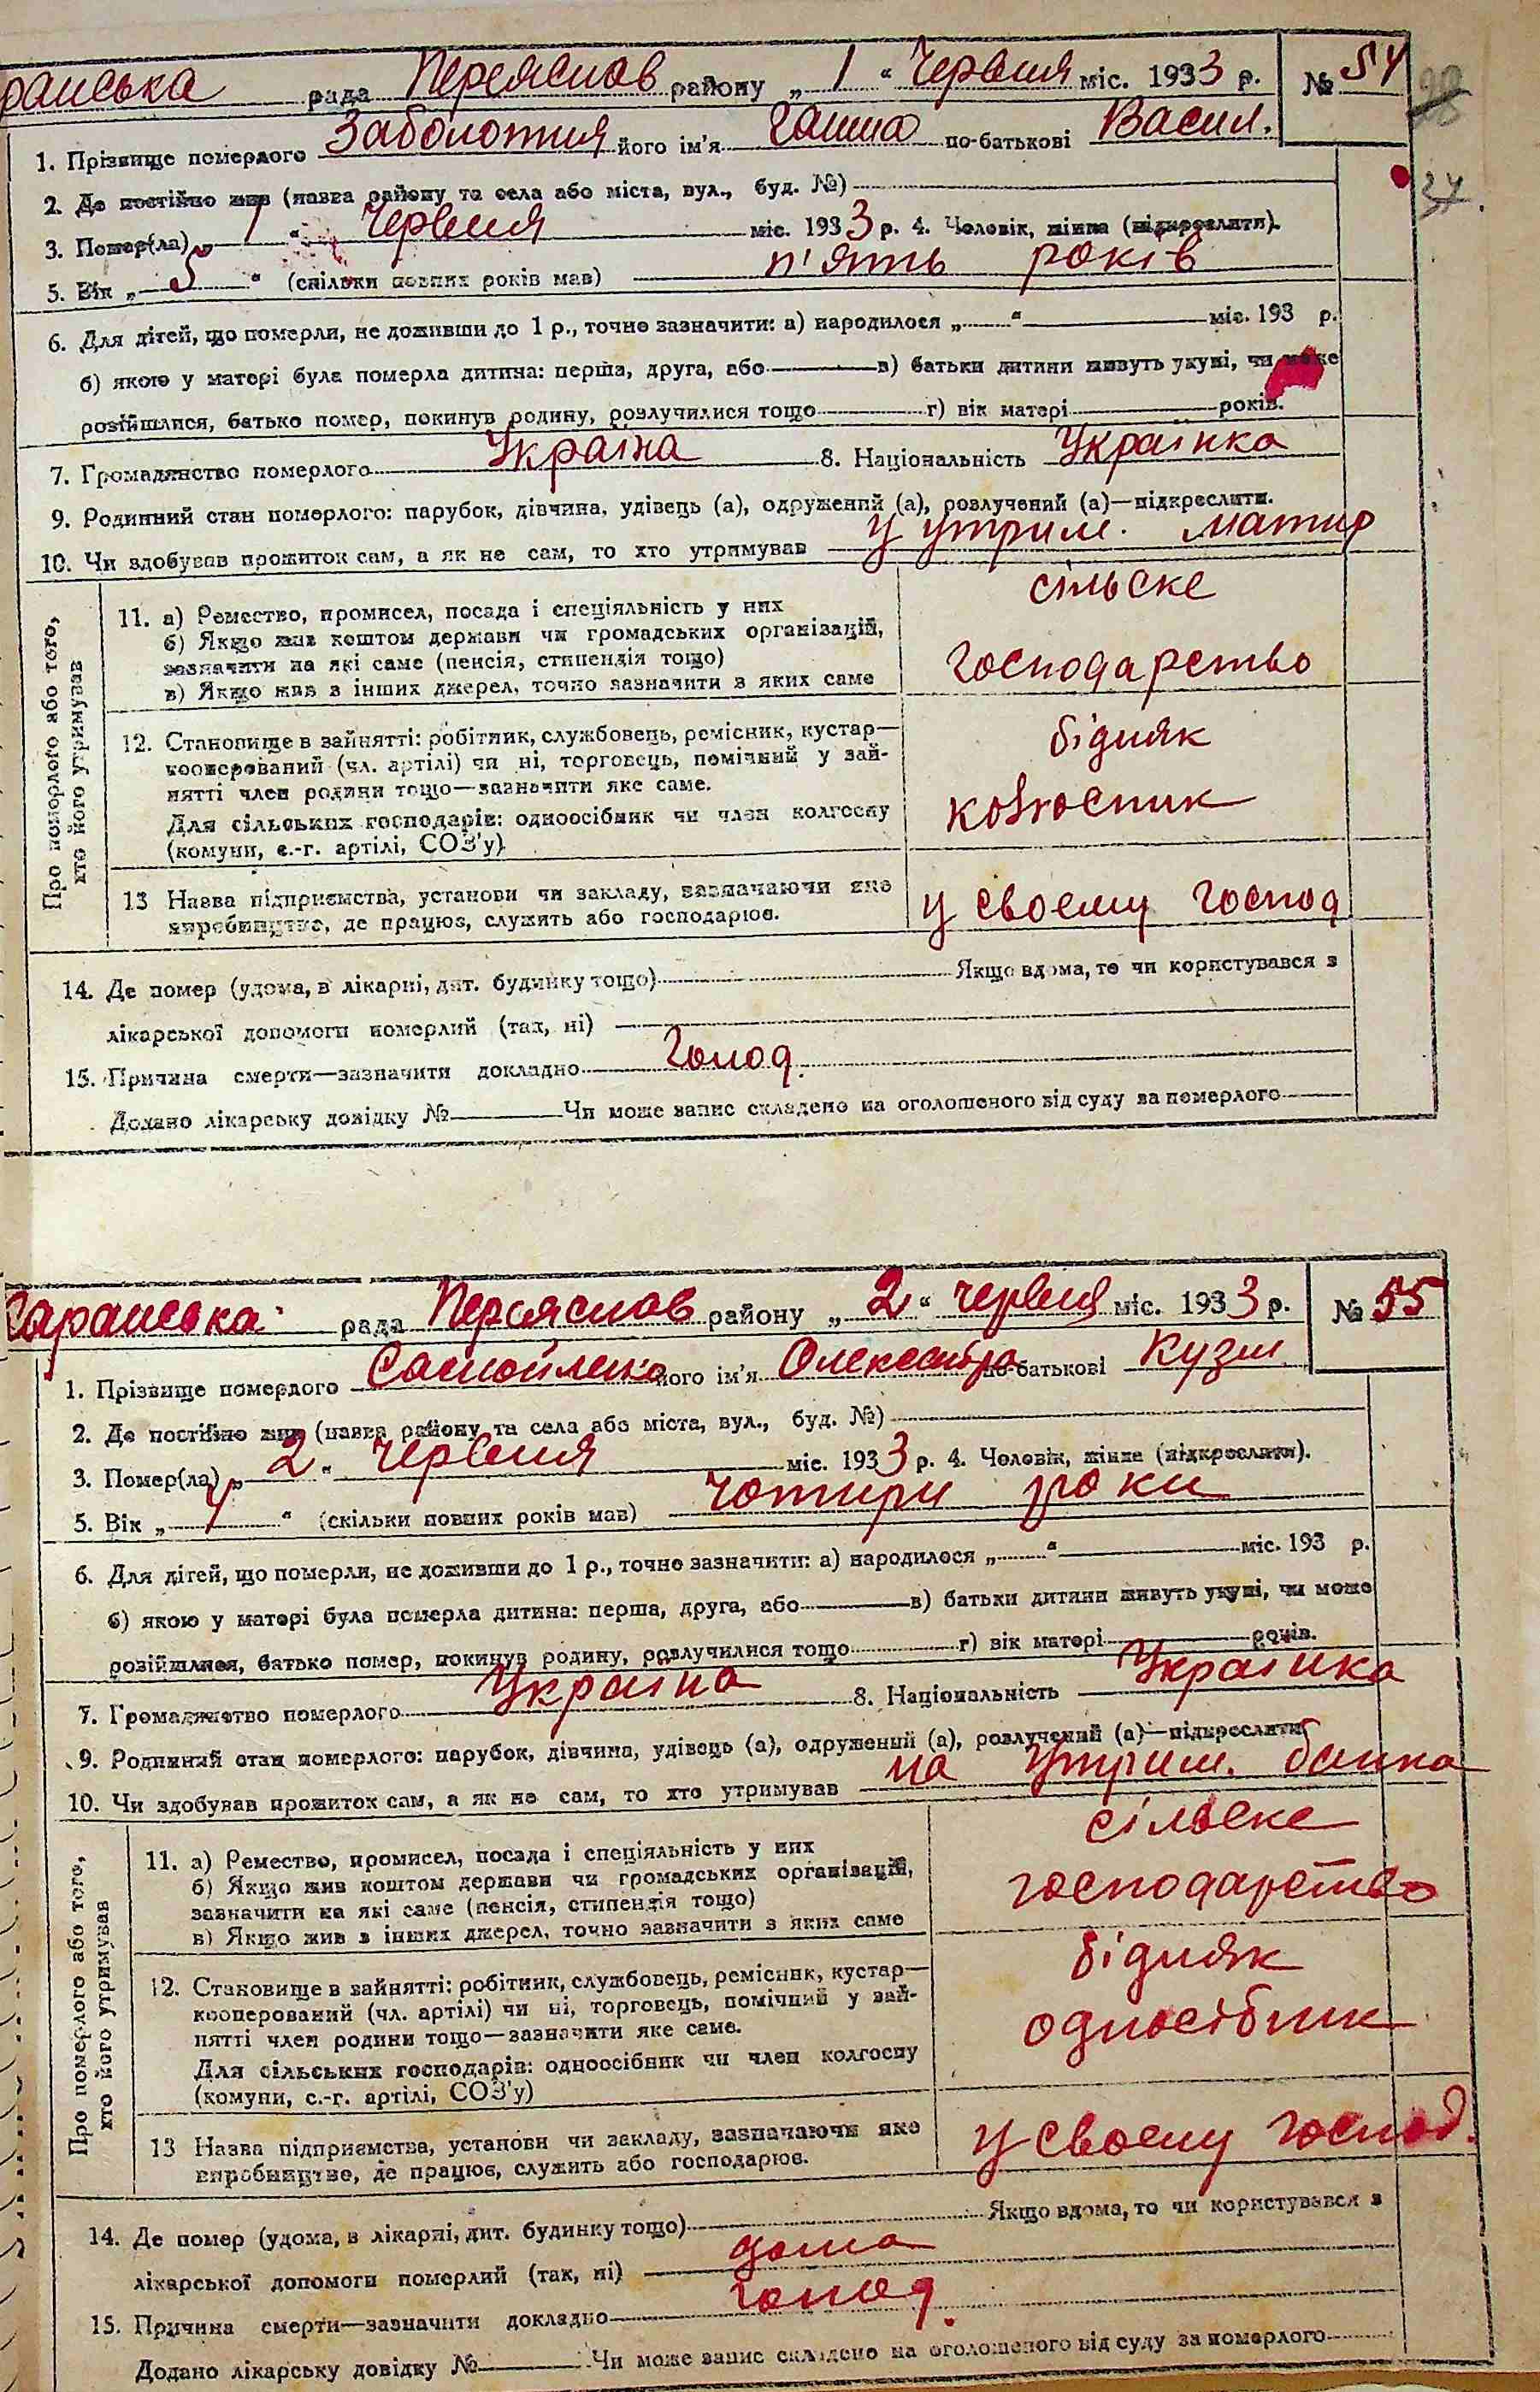 ранська рада Переяслов району „ 1 “ Червня міс. 1933 р. № 54
1. Прізвище померлого Заболотня його ім'я Ганна по-батькові Васил.
2. Де постійно жив (назва району та села або міста, вул., буд. №)
37.
3. Помер(ла) „ 1 “ Червня міс. 1933 р. 4. Чоловік, жінка (підкреслити).
5. Вік „ 5 “ (скільки повних років мав) п'ять років
6. Для дітей, що померли, не доживши до 1 р., точно зазначити: а) народилося „ “ міс. 193 р.
б) якою у матері була померла дитина: перша, друга, або в) батьки дитини живуть укупі, чи може
розійшлися, батько помер, покинув родину, розлучилися тощо г) вік матері років.
7. Громадянство померлого Україна 8. Національність Українка
9. Родинний стан померлого: парубок, дівчина, удівець (а), одружений (а), розлучений (а)—підкреслити.
10. Чи здобував прожиток сам, а як не сам, то хто утримував у утрим. матир
Про померлого або того, хто його утримував
11. а) Ремество, промисел, посада і спеціяльність у них
б) Якщо жив коштом держави чи громадських організацій,
зазначити на які саме (пенсія, стипендія тощо)
в) Якщо жив з інших джерел, точно зазначити з яких саме
сільске
господарство
12. Становище в зайнятті: робітник, службовець, ремісник, кустар—
кооперований (чл. артілі) чи ні, торговець, помічний у зай-
нятті член родини тощо—зазначити яке саме.
Для сільських господарів: одноосібник чи член колгоспу
(комуни, с.-г. артілі, СОЗ'у)
бідняк
колгосник
13 Назва підприємства, установи чи закладу, зазначаючи яке
виробництво, де працює, служить або господарює.
у своєму господ
14. Де помер (удома, в лікарні, дит. будинку тощо) Якщо вдома, то чи користувався з
лікарської допомоги померлий (так, ні)
15. Причина смерти—зазначити докладно Голод.
Додано лікарську довідку № Чи може запис складено на оголошеного від суду за померлого
Саранська рада Переяслов району „ 2 “ червня міс. 1933 р. № 55
1. Прізвище померлого Самойленко його ім'я Олександра по-батькові Кузм.
2. Де постійно жив (назва району та села або міста, вул., буд. №)
3. Помер(ла) „ 2 “ червня міс. 1933 р. 4. Чоловік, жінка (підкреслити).
5. Вік „ 4 “ (скільки повних років мав) чотири роки
6. Для дітей, що померли, не доживши до 1 р., точно зазначити: а) народилося „ “ міс. 193 р.
б) якою у матері була померла дитина: перша, друга, або в) батьки дитини живуть укупі, чи може
розійшлися, батько помер, покинув родину, розлучилися тощо г) вік матері років.
7. Громадянство померлого Україна 8. Національність Українка
9. Родинний стан померлого: парубок, дівчина, удівець (а), одружений (а), розлучений (а)—підкреслити
10. Чи здобував прожиток сам, а як не сам, то хто утримував на утрим. батька
Про померлого або того, хто його утримував
11. а) Ремество, промисел, посада і спеціяльність у них
б) Якщо жив коштом держави чи громадських організацій,
зазначити на які саме (пенсія, стипендія тощо)
в) Якщо жив з інших джерел, точно зазначити з яких саме
сільске
господарство
12. Становище в зайнятті: робітник, службовець, ремісник, кустар—
кооперований (чл. артілі) чи ні, торговець, помічний у зай-
нятті член родини тощо—зазначити яке саме.
Для сільських господарів: одноосібник чи член колгоспу
(комуни, с.-г. артілі, СОЗ'у)
бідняк
одноосібник
13 Назва підприємства, установи чи закладу, зазначаючи яке
виробництво, де працює, служить або господарює.
у своєму господ.
14. Де помер (удома, в лікарні, дит. будинку тощо) Якщо вдома, то чи користувався з
лікарської допомоги померлий (так, ні) дома
15. Причина смерти—зазначити докладно голод.
Додано лікарську довідку № Чи може запис складено на оголошеного від суду за померлого